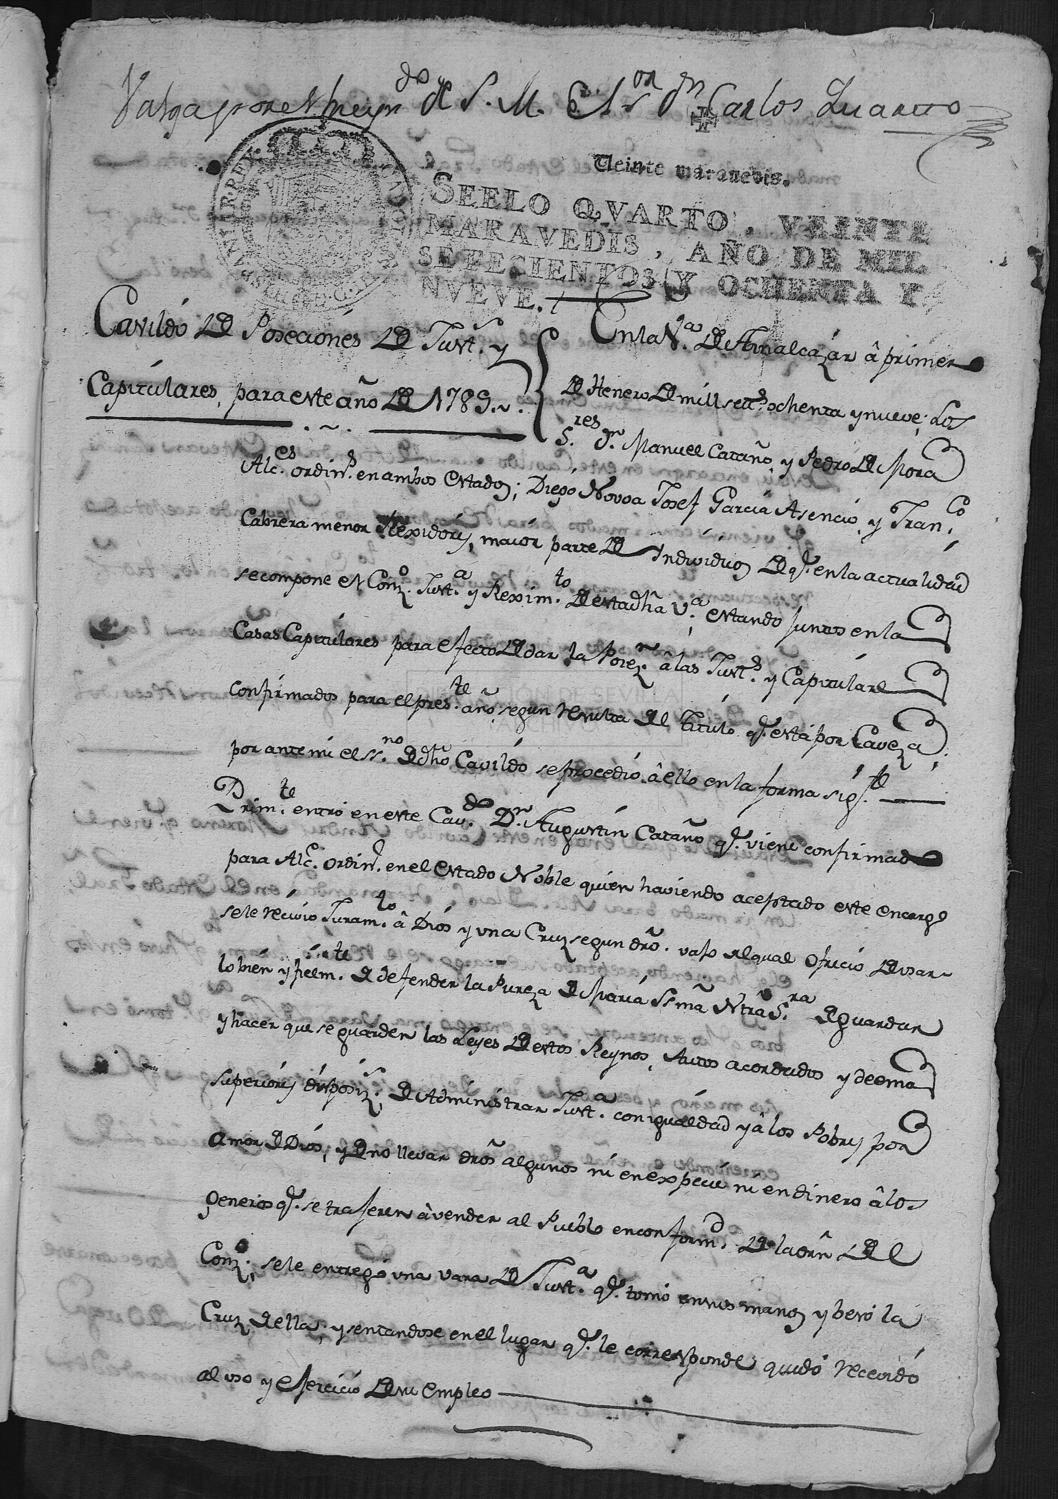 Valga por el Reyn.do de S. M. El S.or Dn Carlos Quarto
Veinte maravedis.
SEELO QVARTO, VEINTE
MARAVEDIS, AÑO DE MIL
SETECIENTOS Y OCHENTA Y
NVEVE.
Cavildo de Poseciónes de Just.s y
Capitúlares, para este año de 1789.~.
En la V.a de Aznalcazar â primero
de Henero de mill sett.s ochenta y nueve; los
S.res Dn Manuel Cataño, y Pedro de Mora
Alc.es ordin.s en ambos estados; Diego Novoa Josef Garcia Asencio, y Fran.co
Cabrera menor Rexidores, maior parte de Individuos de q.e en la actualidad
se compone el Conz.o Just.a y Rexim.to de esta dha V.a; estando juntos en las
Casas Capitulares para efecto de dar la Posez.n â las Just.s y Capitulares
confirmados para el pres.te año, segun resulta del título q.e está por Caveza;
por ante mi el ss.no de dho Cavildo se procedió â ello en la forma sig.te
Prim.te entró en este Cav.do Dn Augustín Cataño q.e viene confirmado
para Alc.e ordin.o en el estado Noble quien haviendo aceptado este encargo
se le recivio Juram.to â Dios y una Cruz segun dro. vajo del qual ofrecio de usar
lo bien y fielm.te de defender la Pureza de Maria SSmã Ntrã S.ra de guardar
y hacer que se guarden las Leyes de estos Reynos, Autos acordados y demas
superiores disposiz.s, de Administrar Just.a con igualdad y â los Pobres por
amor de Dios, y de no llevar dros algunos ni en expecie ni en dinero â los
generos q.e se trageren â vender al Pueblo en conform.d de la orn del
Conz.o; se le entregó una vara de Just.a q.e tomó en sus manos y besó la
Cruz de ella, y sentandose en el lugar q.e le corresponde quedó recevido
al uso y ejercicio de su empleo